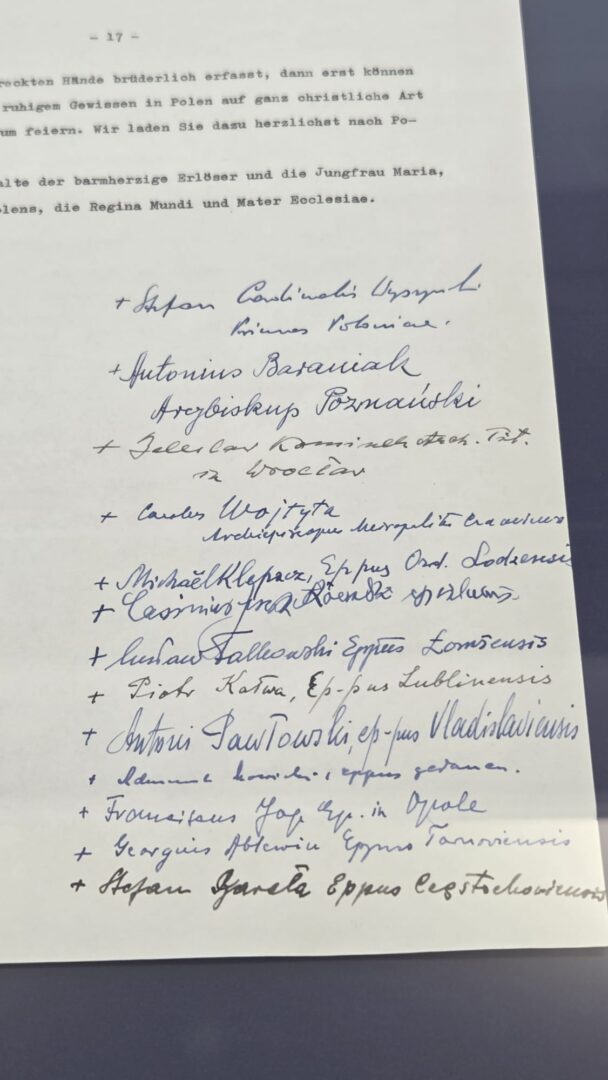 - 17 -
reckten Hände brüderlich erfasst, dann erst können
ruhigem Gewissen in Polen auf ganz christliche Art
um feiern. Wir laden Sie dazu herzlichst nach Po-
alte der barmherzige Erlöser und die Jungfrau Maria,
olens, die Regina Mundi und Mater Ecclesiae.
+ Stefan Cardinalis Wyszyński
Primas Poloniae.
+ Antonius Baraniak
Arcybiskup Poznański
+ Boleslav Kominek Arch. Tit.
in Wrocław
+ Carolus Wojtyła
Archiepiscopus Metropolita Cracoviens
+ Michaël Klepacz, Eppus Ord. Lodzensis
+ Casimirus
+ Czesław Falkowski Eppus Łomzensis
+ Piotr Kałwa, Ep-pus Lublinensis
+ Antoni Pawłowski, ep-pus Vladislaviensis
+ Nowicki eppus gedanen.
+ Franciscus Jop Ep. in Opole
+ Georgius Ablewicz Eppus Tarnoviensis
+ Stefan Bareła Eppus Częstochoviensis